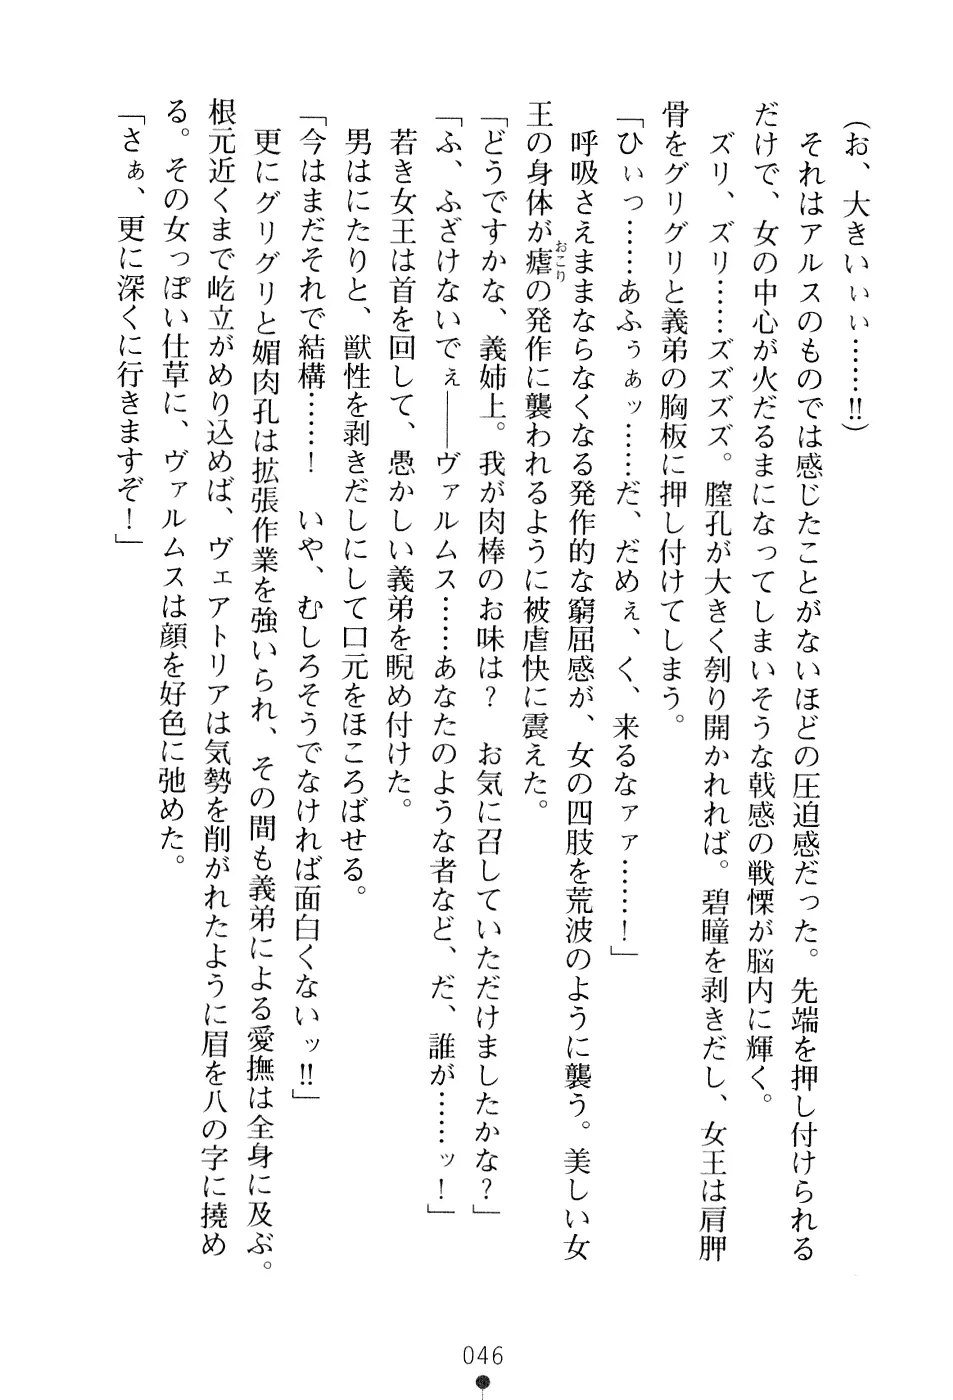 (お、大きいぃぃ……!!)
　それはアルスのものでは感じたことがないほどの圧迫感だった。先端を押し付けられる
だけで、女の中心が火だるまになってしまいそうな戟感の戦慄が脳内に輝く。
　ズリ、ズリ……ズズズズ。膣孔が大きく刳り開かれれば。碧瞳を剥きだし、女王は肩胛
骨をグリグリと義弟の胸板に押し付けてしまう。
「ひぃっ……あふぅぁッ……だ、だめぇ、く、来るなァァ……!」
　呼吸さえままならなくなる発作的な窮屈感が、女の四肢を荒波のように襲う。美しい女
王の身体が瘧おこりの発作に襲われるように被虐快に震えた。
「どうですかな、義姉上。我が肉棒のお味は?　お気に召していただけましたかな?」
「ふ、ふざけないでぇ――ヴァルムス……あなたのような者など、だ、誰が……ッ!」
　若き女王は首を回して、愚かしい義弟を睨め付けた。
　男はにたりと、獣性を剥きだしにして口元をほころばせる。
「今はまだそれで結構……!　いや、むしろそうでなければ面白くないッ!!」
　更にグリグリと媚肉孔は拡張作業を強いられ、その間も義弟による愛撫は全身に及ぶ。
根元近くまで屹立がめり込めば、ヴェアトリアは気勢を削がれたように眉を八の字に撓め
る。その女っぽい仕草に、ヴァルムスは顔を好色に弛めた。
「さぁ、更に深くに行きますぞ!」
046